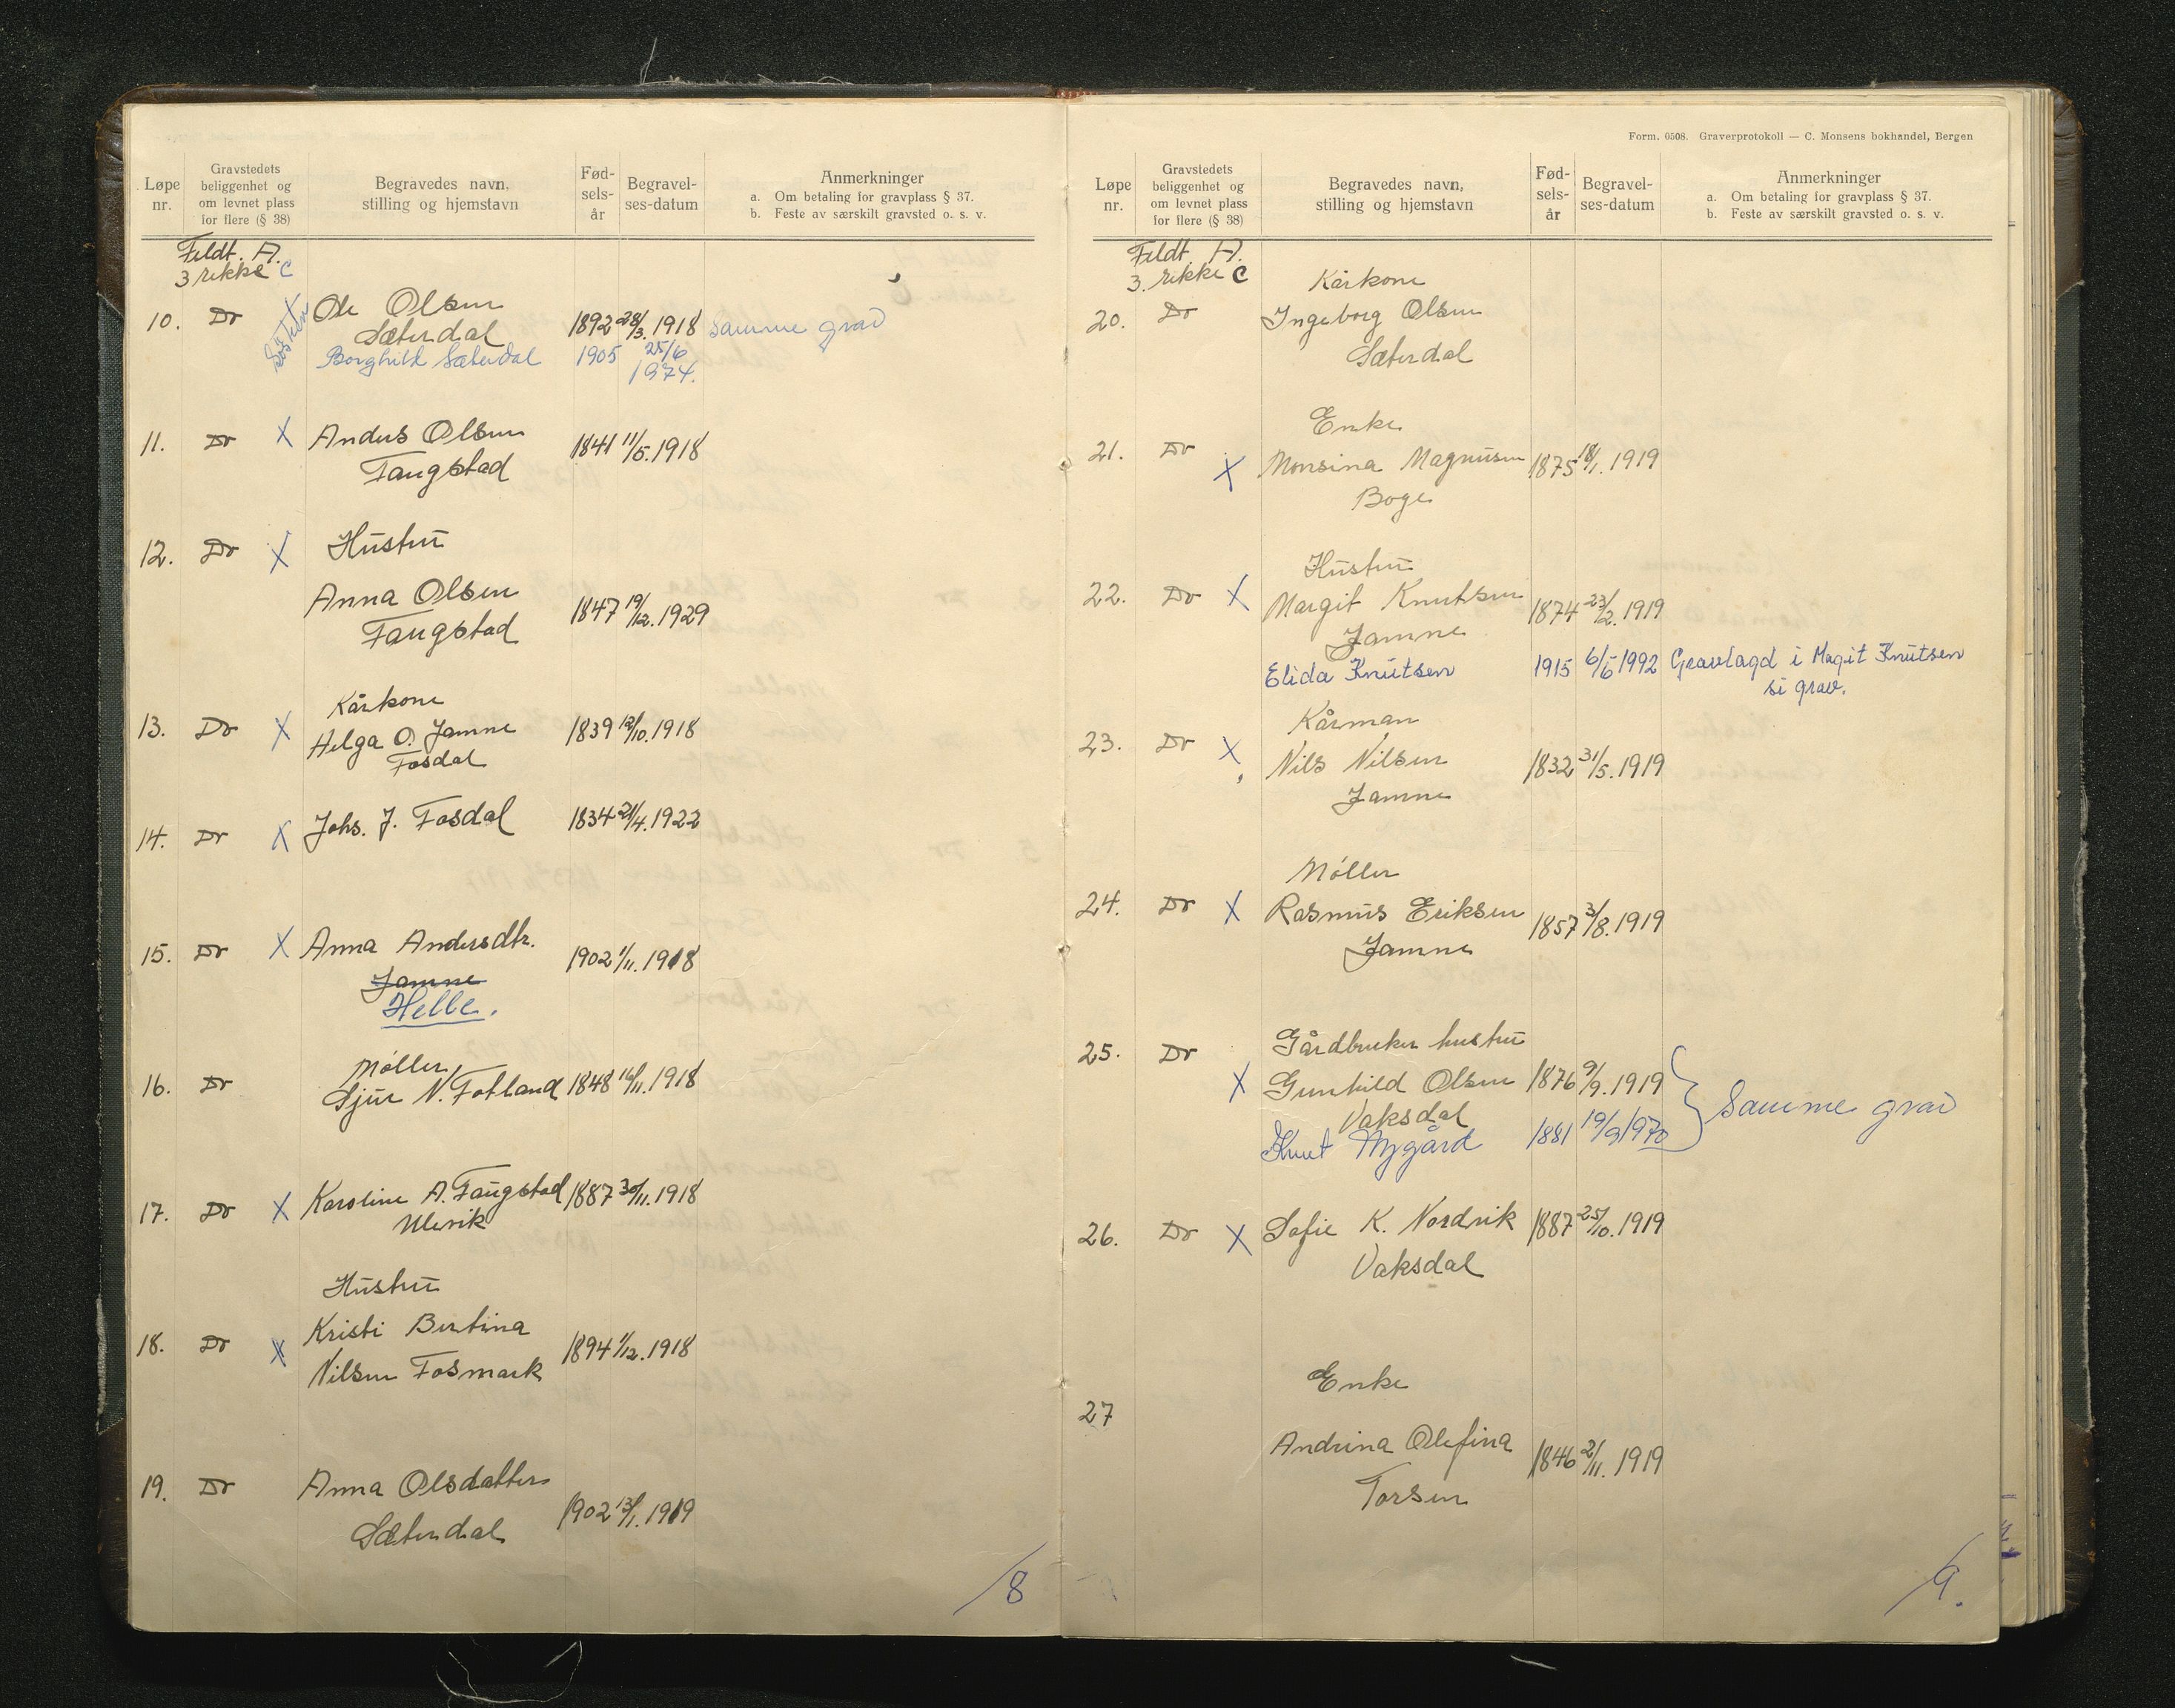 Løpe nr.
Gravstedets beliggenhet og om levnet plass for flere (§ 38)
Begravedes navn, stilling og hjemstavn
Fød-sels-år
Begravel-ses-datum
Anmerkninger
a. Om betaling for gravplass § 37.
b. Feste av særskilt gravsted o. s. v.
Feldt. A.
3 rekke C
10. Do X Ole Olsen 1892 28/3. 1918 Samme grav
Søsken
Sæterdal
Borghild Sæterdal 1905 25/6
1974.
11. Do X Anders Olsen 1841 11/5. 1918
Fangstad
12. Do X Hustru
Anna Olsen 1847 19/12. 1929
Fangstad
Kårkone
13. Do X Helga O. Jamne 1839 12/10. 1918
Fosdal
14. Do X Johs. J. Fosdal 1834 21/4. 1922
15. Do X Anna Andersdtr. 1902 1/11. 1918
Jamne
Helle.
Møller
16. Do Sjur N. Fotland 1848 16/11. 1918
17. Do X Karoline A. Fangstad 1887 30/11. 1918
Ulvik
Hustru
18. Do X Kristi Bertina
Nilsen Fosmark 1894 1/12. 1918
19. Do Anna Olsdatter 1902 13/1. 1919
Sæterdal
/8
Form. 0508. Graverprotokoll — C. Monsens bokhandel, Bergen
Løpe nr.
Gravstedets beliggenhet og om levnet plass for flere (§ 38)
Begravedes navn, stilling og hjemstavn
Fød-sels-år
Begravel-ses-datum
Anmerkninger
a. Om betaling for gravplass § 37.
b. Feste av særskilt gravsted o. s. v.
Feldt. A.
3. rekke C
Kårkone
20. Do Ingeborg Olsen
Sæterdal
Enke
21. Do X Monsina Magnusen 1875 18/1. 1919
Boge
Hustru
22. Do X Margit Knutsen 1874 23/2. 1919
Jamne
Elida Knutsen 1915 6/5 1992 Gravlagd i Magit Knutsen
si grav.
Kårman
23. Do X Nils Nilsen 1832 31/5. 1919
Jamne
Møller
24. Do X Rasmus Eriksen 1857 3/8. 1919
Jamne
Gårdbruker hustru
25. Do X Gunhild Olsen 1876 9/9. 1919
Samme grav
Vaksdal
Knut Nygård 1881 19/9 1970
26. Do X Sofie K. Nordvik 1887 25/10. 1919
Vaksdal
Enke
27
Andrina Olefina 1846 21/11. 1919
Torsen
/9.